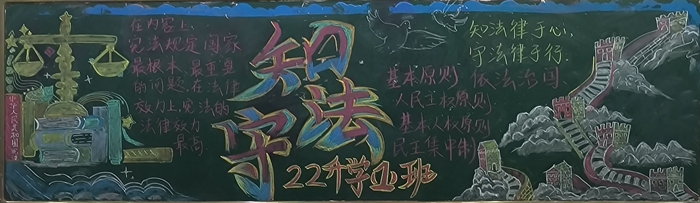 在内容上,
宪法规定国家
最根本、最重要
的问题,在法律
效力上,宪法的
法律效力
最高
中华人民共和国宪法
知法
守法
22升学1班
知法律于心,
守法律于行.
基本原则 依法治国
人民主权原则
基本人权原则
民主集中制